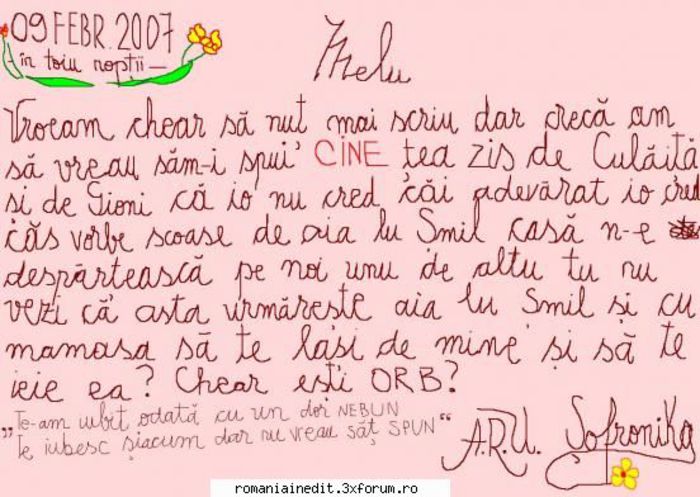 09 FEBR. 2007
în toiu nopții —
Melu
Vroeam chear să nuț mai scriu dar crecă am
să vreau săm-i spui CINE tea zis de Culăița
și de Gioni că io nu cred căi adevărat io cred
căs vorbe scoase de aia lu Smil casă n-e
despărtească pe noi unu de altu tu nu
vezi că asta urmărește aia lu Smil și cu
mamasa să te lași de mine și să te
ieie ea? Chear ești ORB?
„Te-am iubit odată cu un dor NEBUN
Te iubesc șiacum dar nu vreau săț SPUN“
A.R.U. Sofronika
romaniainedit.3xforum.ro